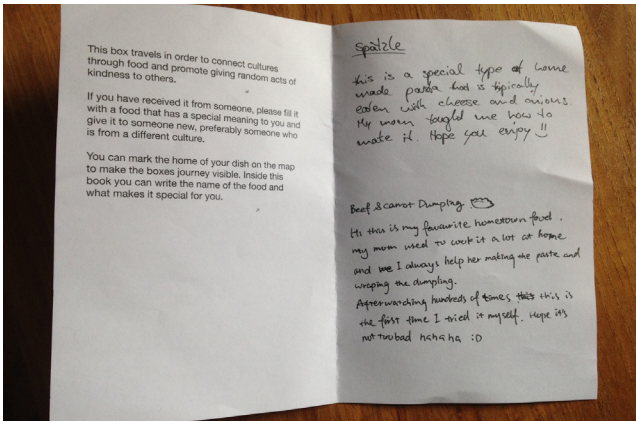 This box travels in order to connect cultures
through food and promote giving random acts of
kindness to others.
If you have received it from someone, please fill it
with a food that has a special meaning to you and
give it to someone new, preferably someone who
is from a different culture.
You can mark the home of your dish on the map
to make the boxes journey visible. Inside this
book you can write the name of the food and
what makes it special for you.
Spätzle
this is a special type of home
made pasta that is typically
eaten with cheese and onions.
My mom taught me how to
make it. Hope you enjoy !!
Beef & Carrot Dumpling
Hi this is my favourite hometown food.
my mum used to cook it a lot at home
and we I always help her making the paste and
wraping the dumpling.
After watching hundreds of times this this is
the first time I tried it myself. Hope it's
not too bad hahaha :D